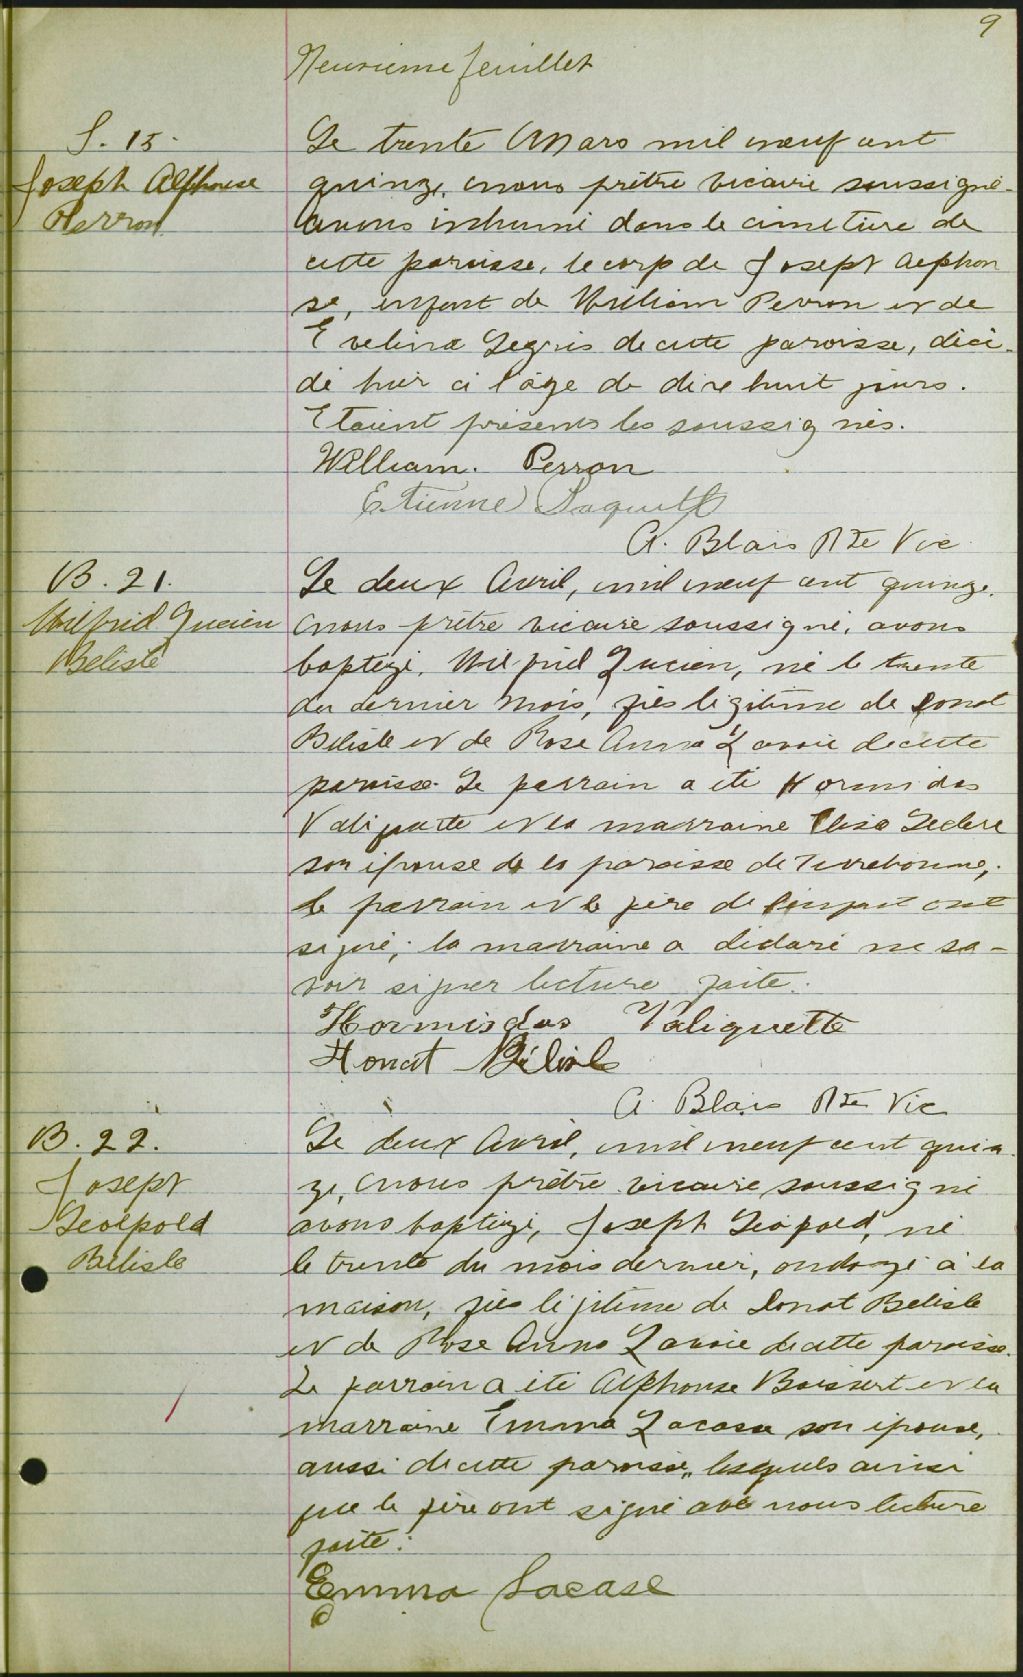 9
Neuvieme feuillet
S. 15.
Joseph Alphonse
Perron
Le trente Mars mil neuf cent
quinze, nous prêtre vicaire soussigné
avons inhumé dans le cimetière de
cette paroisse, le corp de Joseph Alphon
se, enfant de William Perron et de
Evelina Legris de cette paroisse, décé-
dé hier à l'âge de dix huit jours.
Etaient présents les soussignés.
William. Perron
Etienne Paquette
A. Blais Ptre Vic
B. 21.
Wilfrid Lucien
Belisle
Le deux Avril, mil neuf cent quinze.
nous prêtre vicaire soussigné, avons
baptizé, Wilfrid Lucien, né le trente
du dernier mois, fils légitime de Donat
Belisle et de Rose Anna Lavoie de cette
paroisse. Le parrain a été Hormidas
Valiquette et la marraine Elisa Leclerc
son épouse de la paroisse de Terrebonne,
le parrain et le père de l'enfant ont
signé; la marraine a déclaré ne sa-
voir signer lecture faite.
Hormisdas Valiquette
Donat Bélisle
A Blais Ptre Vic
B. 22.
Joseph
Léolpold
Bélisle
Le deux Avril, mil neuf cent quin
ze, nous prêtre vicaire soussigné
avons baptizé, Joseph Léopold, né
le trente du mois dernier, ondoyé à la
maison, fils légitime de Donat Belisle
et de Rose Anna Lavoie de cette paroisse.
Le parrain a été Alphonse Boisvert et la
marraine Emma Lacasse son épouse,
aussi de cette paroisse, lesquels ainsi
que le père ont signé avec nous lecture
faite.
Emma Lacase